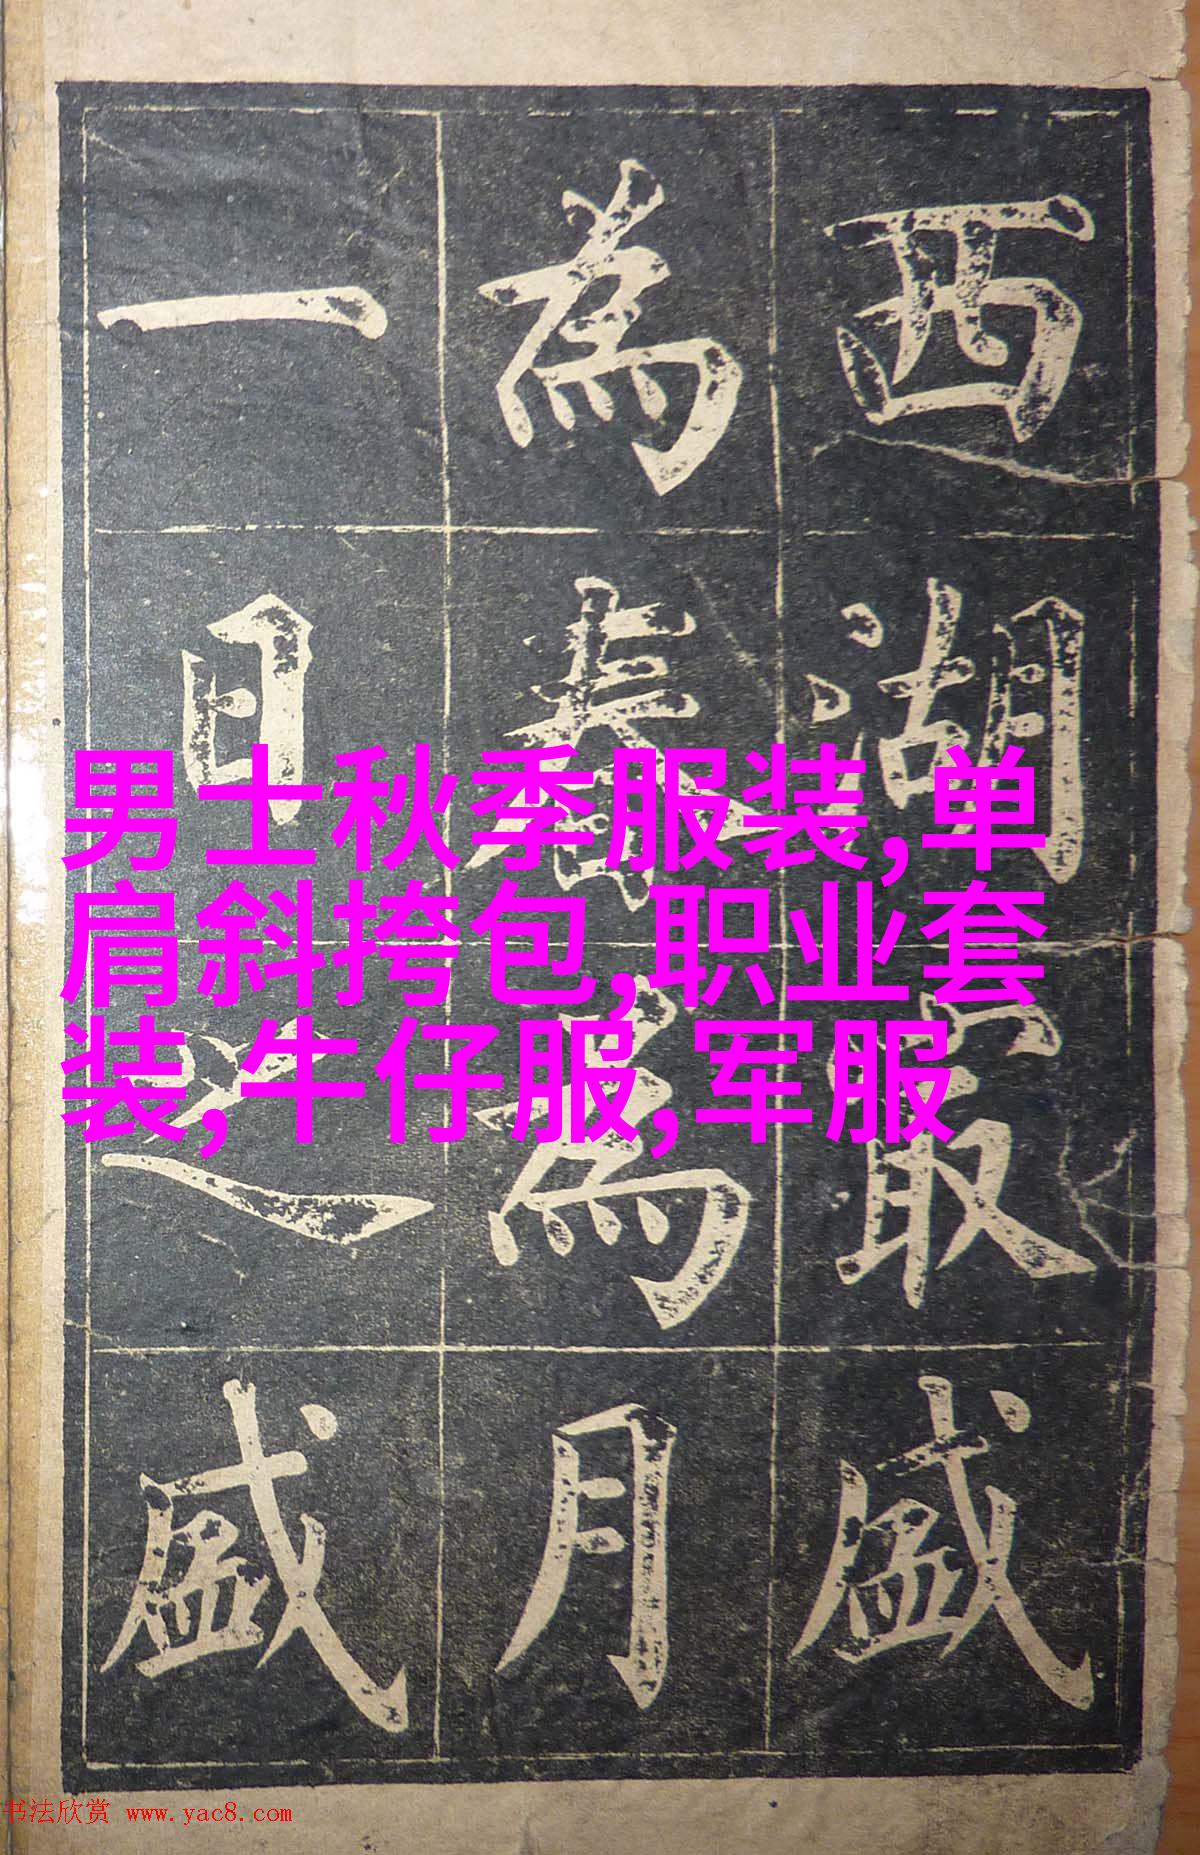 西湖最盛
為春為月
一日之盛
男士秋季服装,单
肩斜挎包,职业套
装,牛仔服,军服
书法欣赏 www.yac8.com